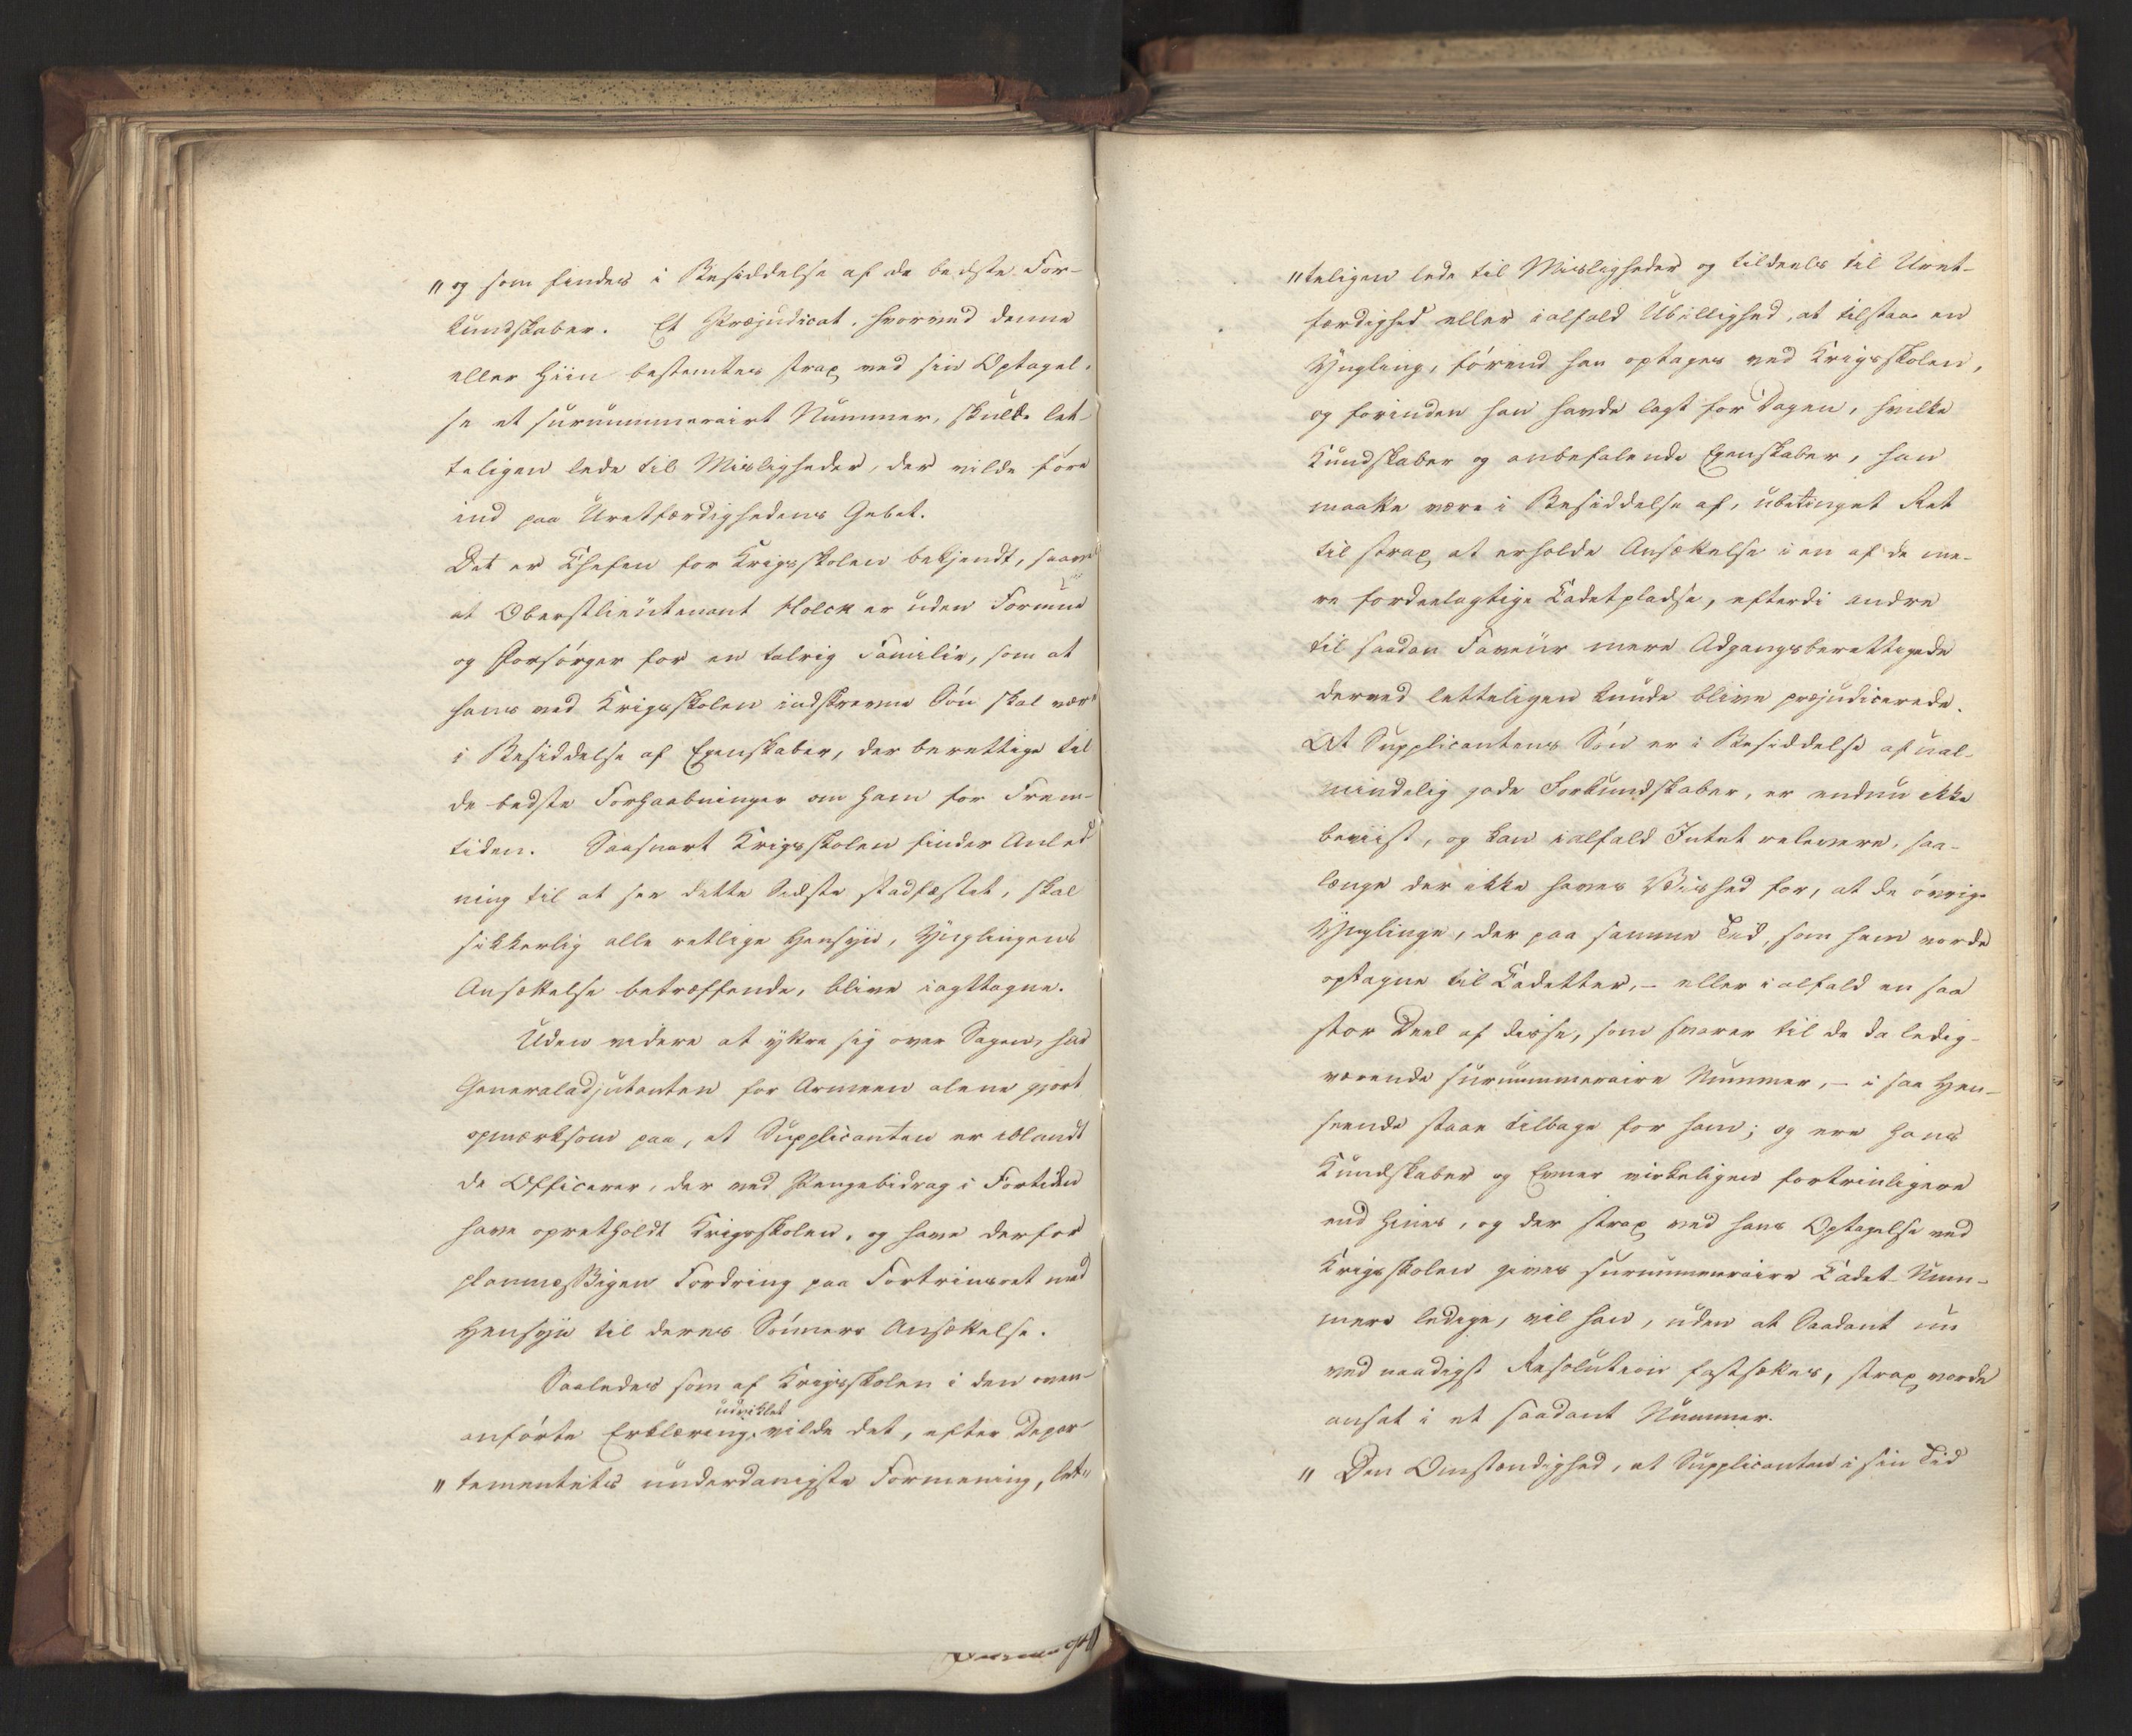 "og som findes i Besiddelse af de bedste For-
kundskaber. Et Præjudicat, hvorved denne
eller Hiin bestemtes strax ved sin Optagel-
se et surnummerairt Nummer, skulde let-
teligen lede til Misligheder, der vilde føre
ind paa Uretfærdighedens Gebet.
Det er Chefen for Krigsskolen bekjendt, saavel
at Oberstlieutenant Holck er uden Formue
og Forsørger for en talrig Familie, som at
hans ved Krigsskolen indskrevne Søn skal være
i Besiddelse af Egenskaber, der berettige til
de bedste Forhaabninger om ham for Frem-
tiden. Saasnart Krigsskolen finder Anled
ning til at see dette Sidste stadfæstet, skal
sikkerlig alle retlige Hensyn, Ynglingens
Ansættelse betræffende, blive iagttagne.
Uden videre at yttre sig over Sagen, har
Generaladjutanten for Armeen alene gjort
opmærksom paa, at Supplicanten er iblandt
de Officerer, der ved Pengebidrag i Fortiden
have opretholdt Krigsskolen, og have derfor
planmæssigen Fordring paa Fortrinsret med
Hensyn til deres Sønners Ansættelse.
Saaledes som af Krigsskolen i den oven-
udviklet
anførte Erklæring, vilde det, efter Depar-
"tementets underdanigste Formening, let"
"teligen lede til Misligheder og tildeels til Uret-
færdighed eller ialfald Ubillighed, at tilstaae en
Yngling, førend han optages ved Krigsskolen,
og forinden han havde lagt for Dagen, hvilke
Kundskaber og anbefalende Egenskaber, han
maatte være i Besiddelse af, ubetinget Ret
til strax at erholde Ansættelse i en af de me-
re fordeelagtige Cadetpladse, efterdi andre
til saadan Faveur mere Adgangsberettigede
derved letteligen kunde blive præjudicerede.
At Supplicantens Søn er i Besiddelse af ual-
mindelig gode Forkundskaber, er endnu ikke
beviist, og kan ialfald Intet relevere, saa-
længe der ikke haves Vished for, at de øvrige
Ynglinge, der paa samme Tid, som ham vorde
optagne til Cadetter, - eller ialfald en saa
stor Deel af disse, som svarer til de da ledig-
værende surnummeraire Nummer, - i saa Hen-
seende staae tilbage for ham; og ere hans
Kundskaber og Evner virkeligen fortrinligere
end Hines, og der strax ved hans Optagelse ved
Krigsskolen gives surnummeraire Cadet-Num-
mere ledige, vil han, uden at Saadant nu
ved naadigst Resolution fastsættes, strax vorde
ansat i et saadant Nummer.
" Den Omstændighed, at Supplicanten i sin Tid